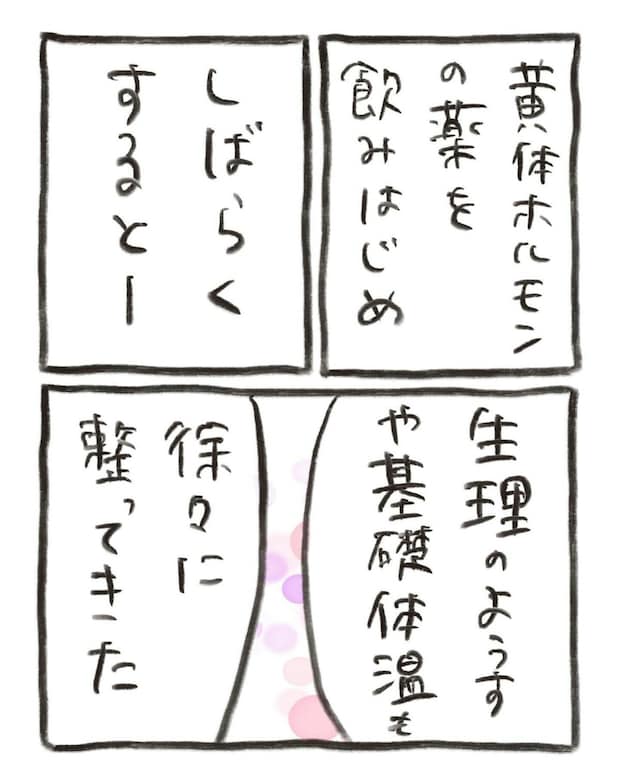 黄体ホルモン
の薬を
飲みはじめ
しばらく
するとー
生理のようす
や基礎体温も
徐々に
整ってきた